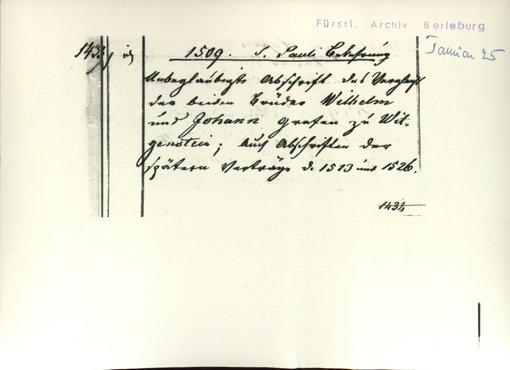 Fürstl. Archiv Berleburg
Januar 25
1433
1509. S. Pauli Bekehrung
Unbeglaubigte Abschrift des Vergleichs
der beiden Brüder Wilhelm
und Johann Grafen zu Wit-
genstein; Auch Abschriften der
spätern Verträge de 1513 und 1526.
1434